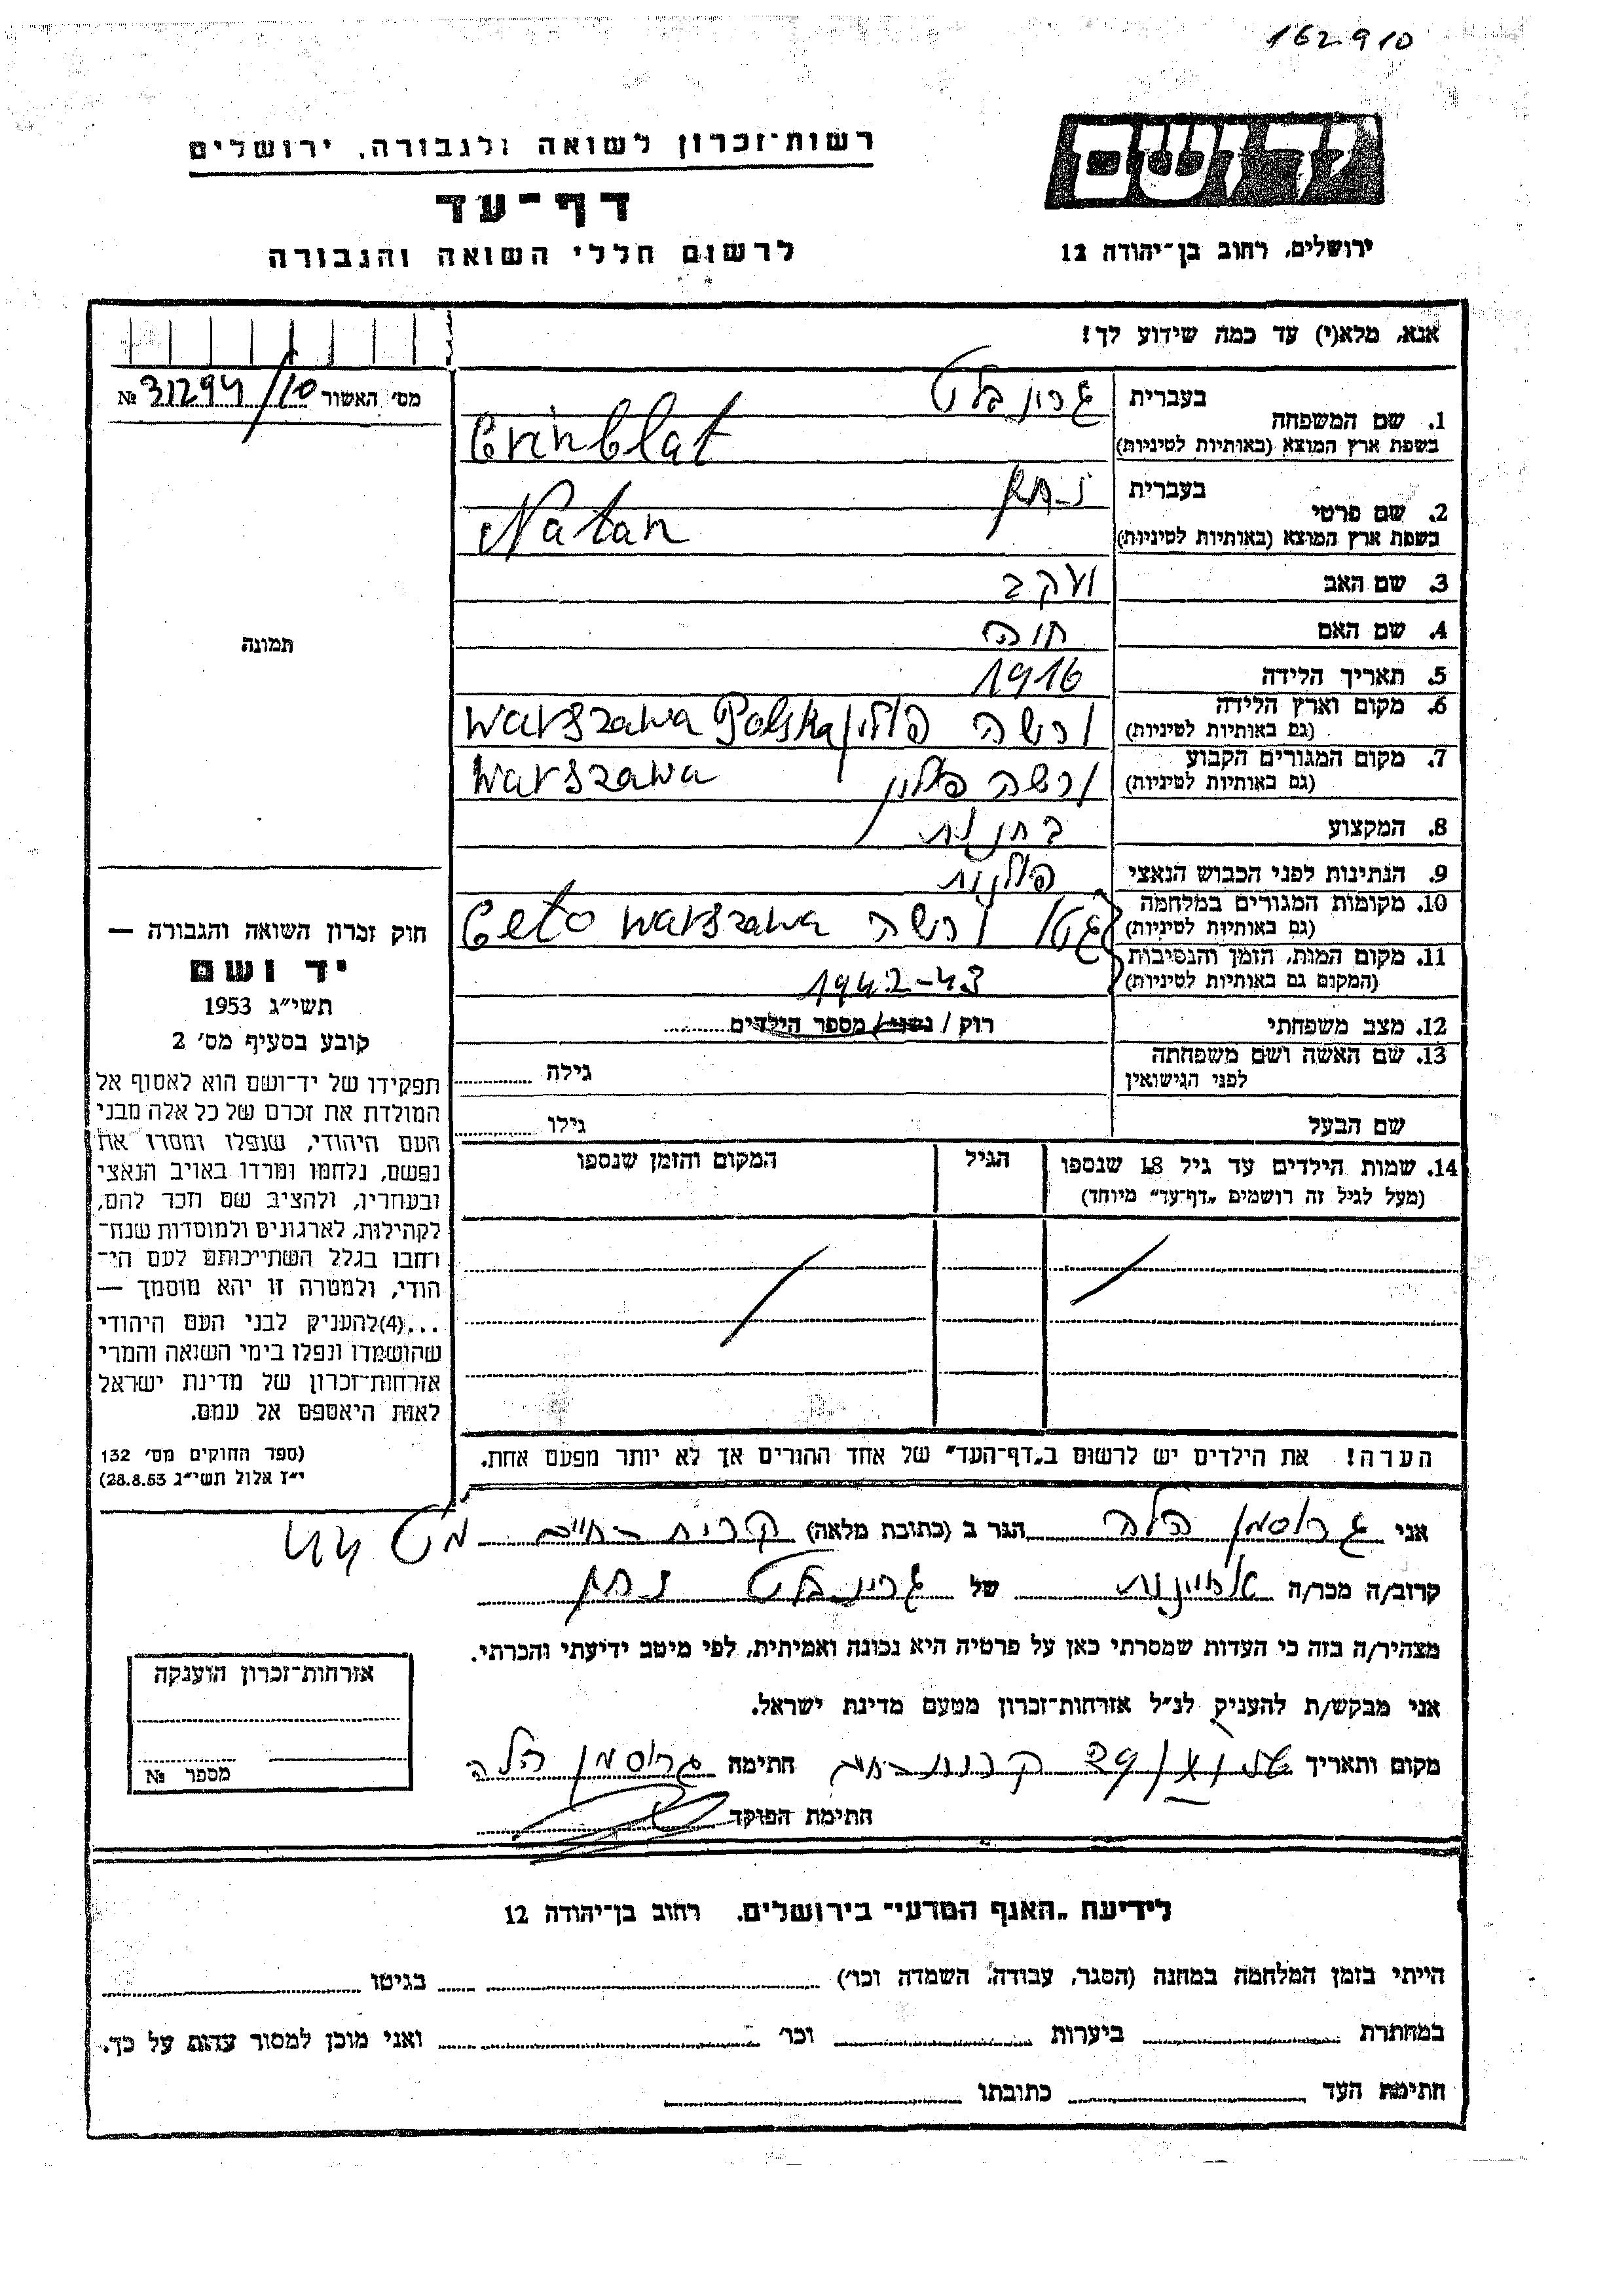 162910
יד ושם
רשות־זכרון לשואה ולגבורה, ירושלים
דף־עד
לרשום חללי השואה והגבורה
ירושלים, רחוב בן־יהודה 12
אנא, מלא(י) עד כמה שידוע לך!
מס' האשור 31294/10 №
בעברית גרונבלט
1. שם המשפחה
בשפת ארץ המוצא (באותיות לטיניות) Grinblat
בעברית נתן
2. שם פרטי
בשפת ארץ המוצא (באותיות לטיניות) Natan
3. שם האב יעקב
4. שם האם חוה
5. תאריך הלידה 1916
6. מקום וארץ הלידה ורשה פולין Warszawa Polska
(גם באותיות לטיניות)
7. מקום המגורים הקבוע ורשה פולין Warszawa
(גם באותיות לטיניות)
8. המקצוע
9. הנתינות לפני הכבוש הנאצי פולנית
10. מקומות המגורים במלחמה גטו ורשה Geto Warszawa
(גם באותיות לטיניות)
11. מקום המות, הזמן והנסיבות
(המקום גם באותיות לטיניות) 1942-43
12. מצב משפחתי רוק / נשוי / מספר הילדים
13. שם האשה ושם משפחתה גילה
לפני הנישואין
שם הבעל גילו
14. שמות הילדים עד גיל 18 שנספו הגיל המקום והזמן שנספו
(מעל לגיל זה רושמים „דף־עד" מיוחד)
הערה! את הילדים יש לרשום ב„דף־העד" של אחד ההורים אך לא יותר מפעם אחת.
תמונה
חוק זכרון השואה והגבורה —
יד ושם
תשי"ג 1953
קובע בסעיף מס' 2
תפקידו של יד־ושם הוא לאסוף אל
המולדת את זכרם של כל אלה מבני
העם היהודי, שנפלו ומסרו את
נפשם, נלחמו ומרדו באויב הנאצי
ובעוזריו, ולהציב שם וזכר להם,
לקהילות, לארגונים ולמוסדות שנח־
רחבו בגלל השתייכותם לעם הי־
הודי, ולמטרה זו יהא מוסמך —
...(4)להעניק לבני העם היהודי
שהושמדו ונפלו בימי השואה והמרי
אזרחות־זכרון של מדינת ישראל
לאות היאספם אל עמם.
(ספר החוקים מס' 132
י"ז אלול תשי"ג 28.8.53)
אני גרוסמן הלה הגר ב (כתובת מלאה) קרית חיים
קרוב/ה מכר/ה של גרינבלט נתן
מצהיר/ה בזה כי העדות שמסרתי כאן על פרטיה היא נכונה ואמיתית, לפי מיטב ידיעתי והכרתי.
אני מבקש/ת להעניק לנ"ל אזרחות־זכרון מטעם מדינת ישראל.
מקום ותאריך חתימה גרוסמן הלה
חתימת הפוקד
אזרחות־זכרון הוענקה
מספר №
לידיעת „האגף המדעי" בירושלים, רחוב בן־יהודה 12
הייתי בזמן המלחמה במחנה (הסגר, עבודה, השמדה וכו') בגיטו
במחתרת ביערות וכו' ואני מוכן למסור עדות על כך.
חתימת העד כתובתו